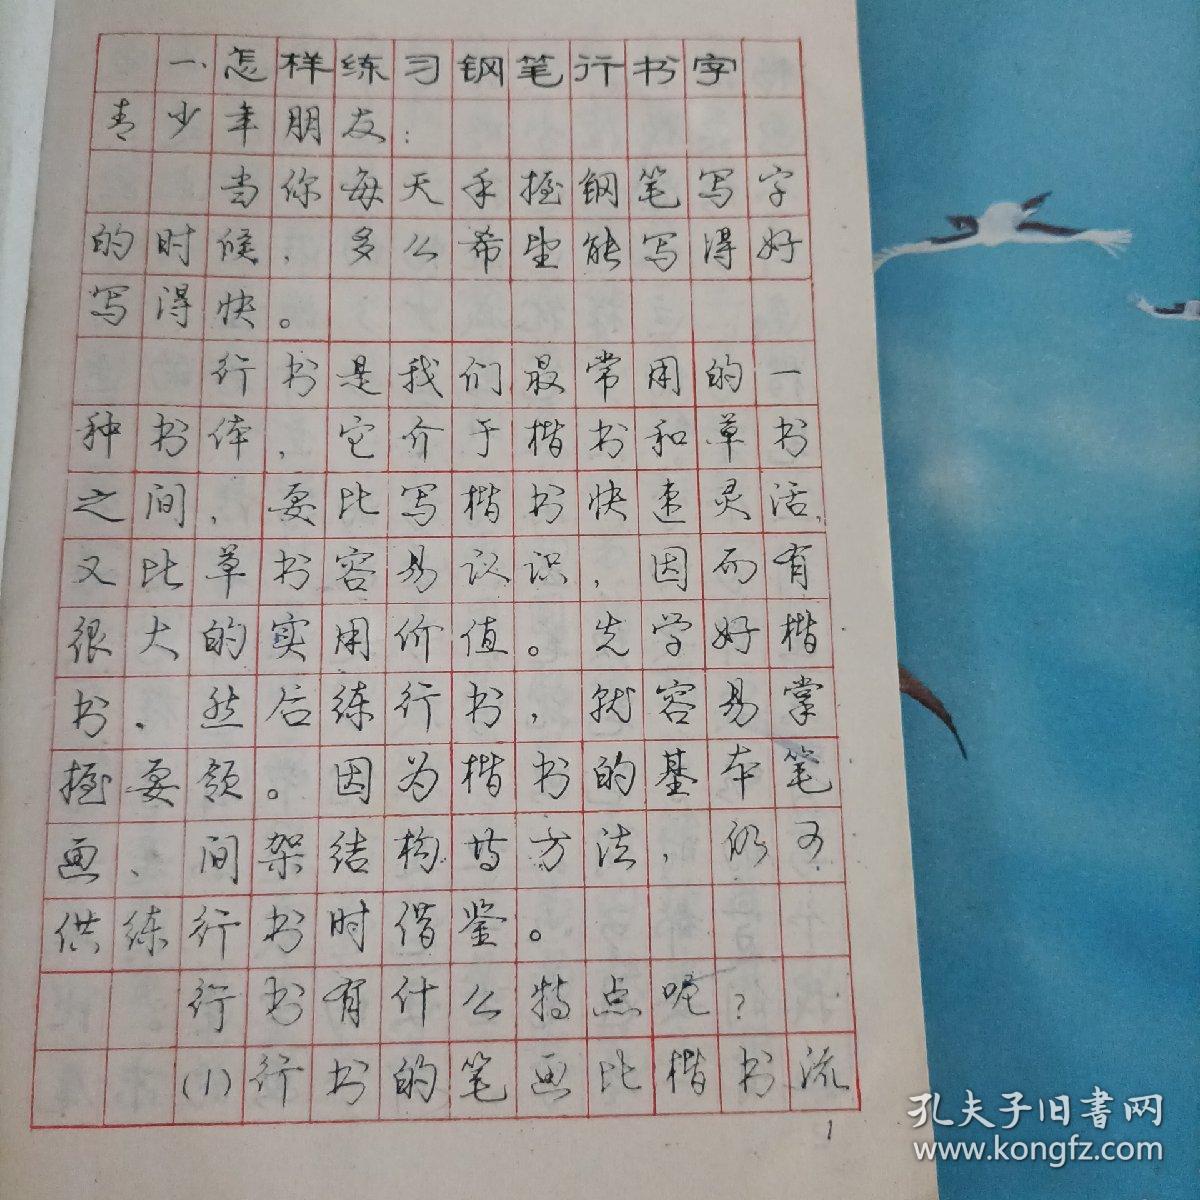 一、怎样练习钢笔行书字
青少年朋友：
当你每天手握钢笔写字
的时候，多么希望能写得好
写得快。
行书是我们最常用的一
种书体，它介于楷书和草书
之间，要比写楷书快速灵活，
又比草书容易认识，因而有
很大的实用价值。先学好楷
书，然后练行书，就容易掌
握要领。因为楷书的基本笔
画、间架结构等方法，仍可
供练行书时借鉴。
行书有什么特点呢？
(1)行书的笔画比楷书流
1
孔夫子旧书网
www.kongfz.com